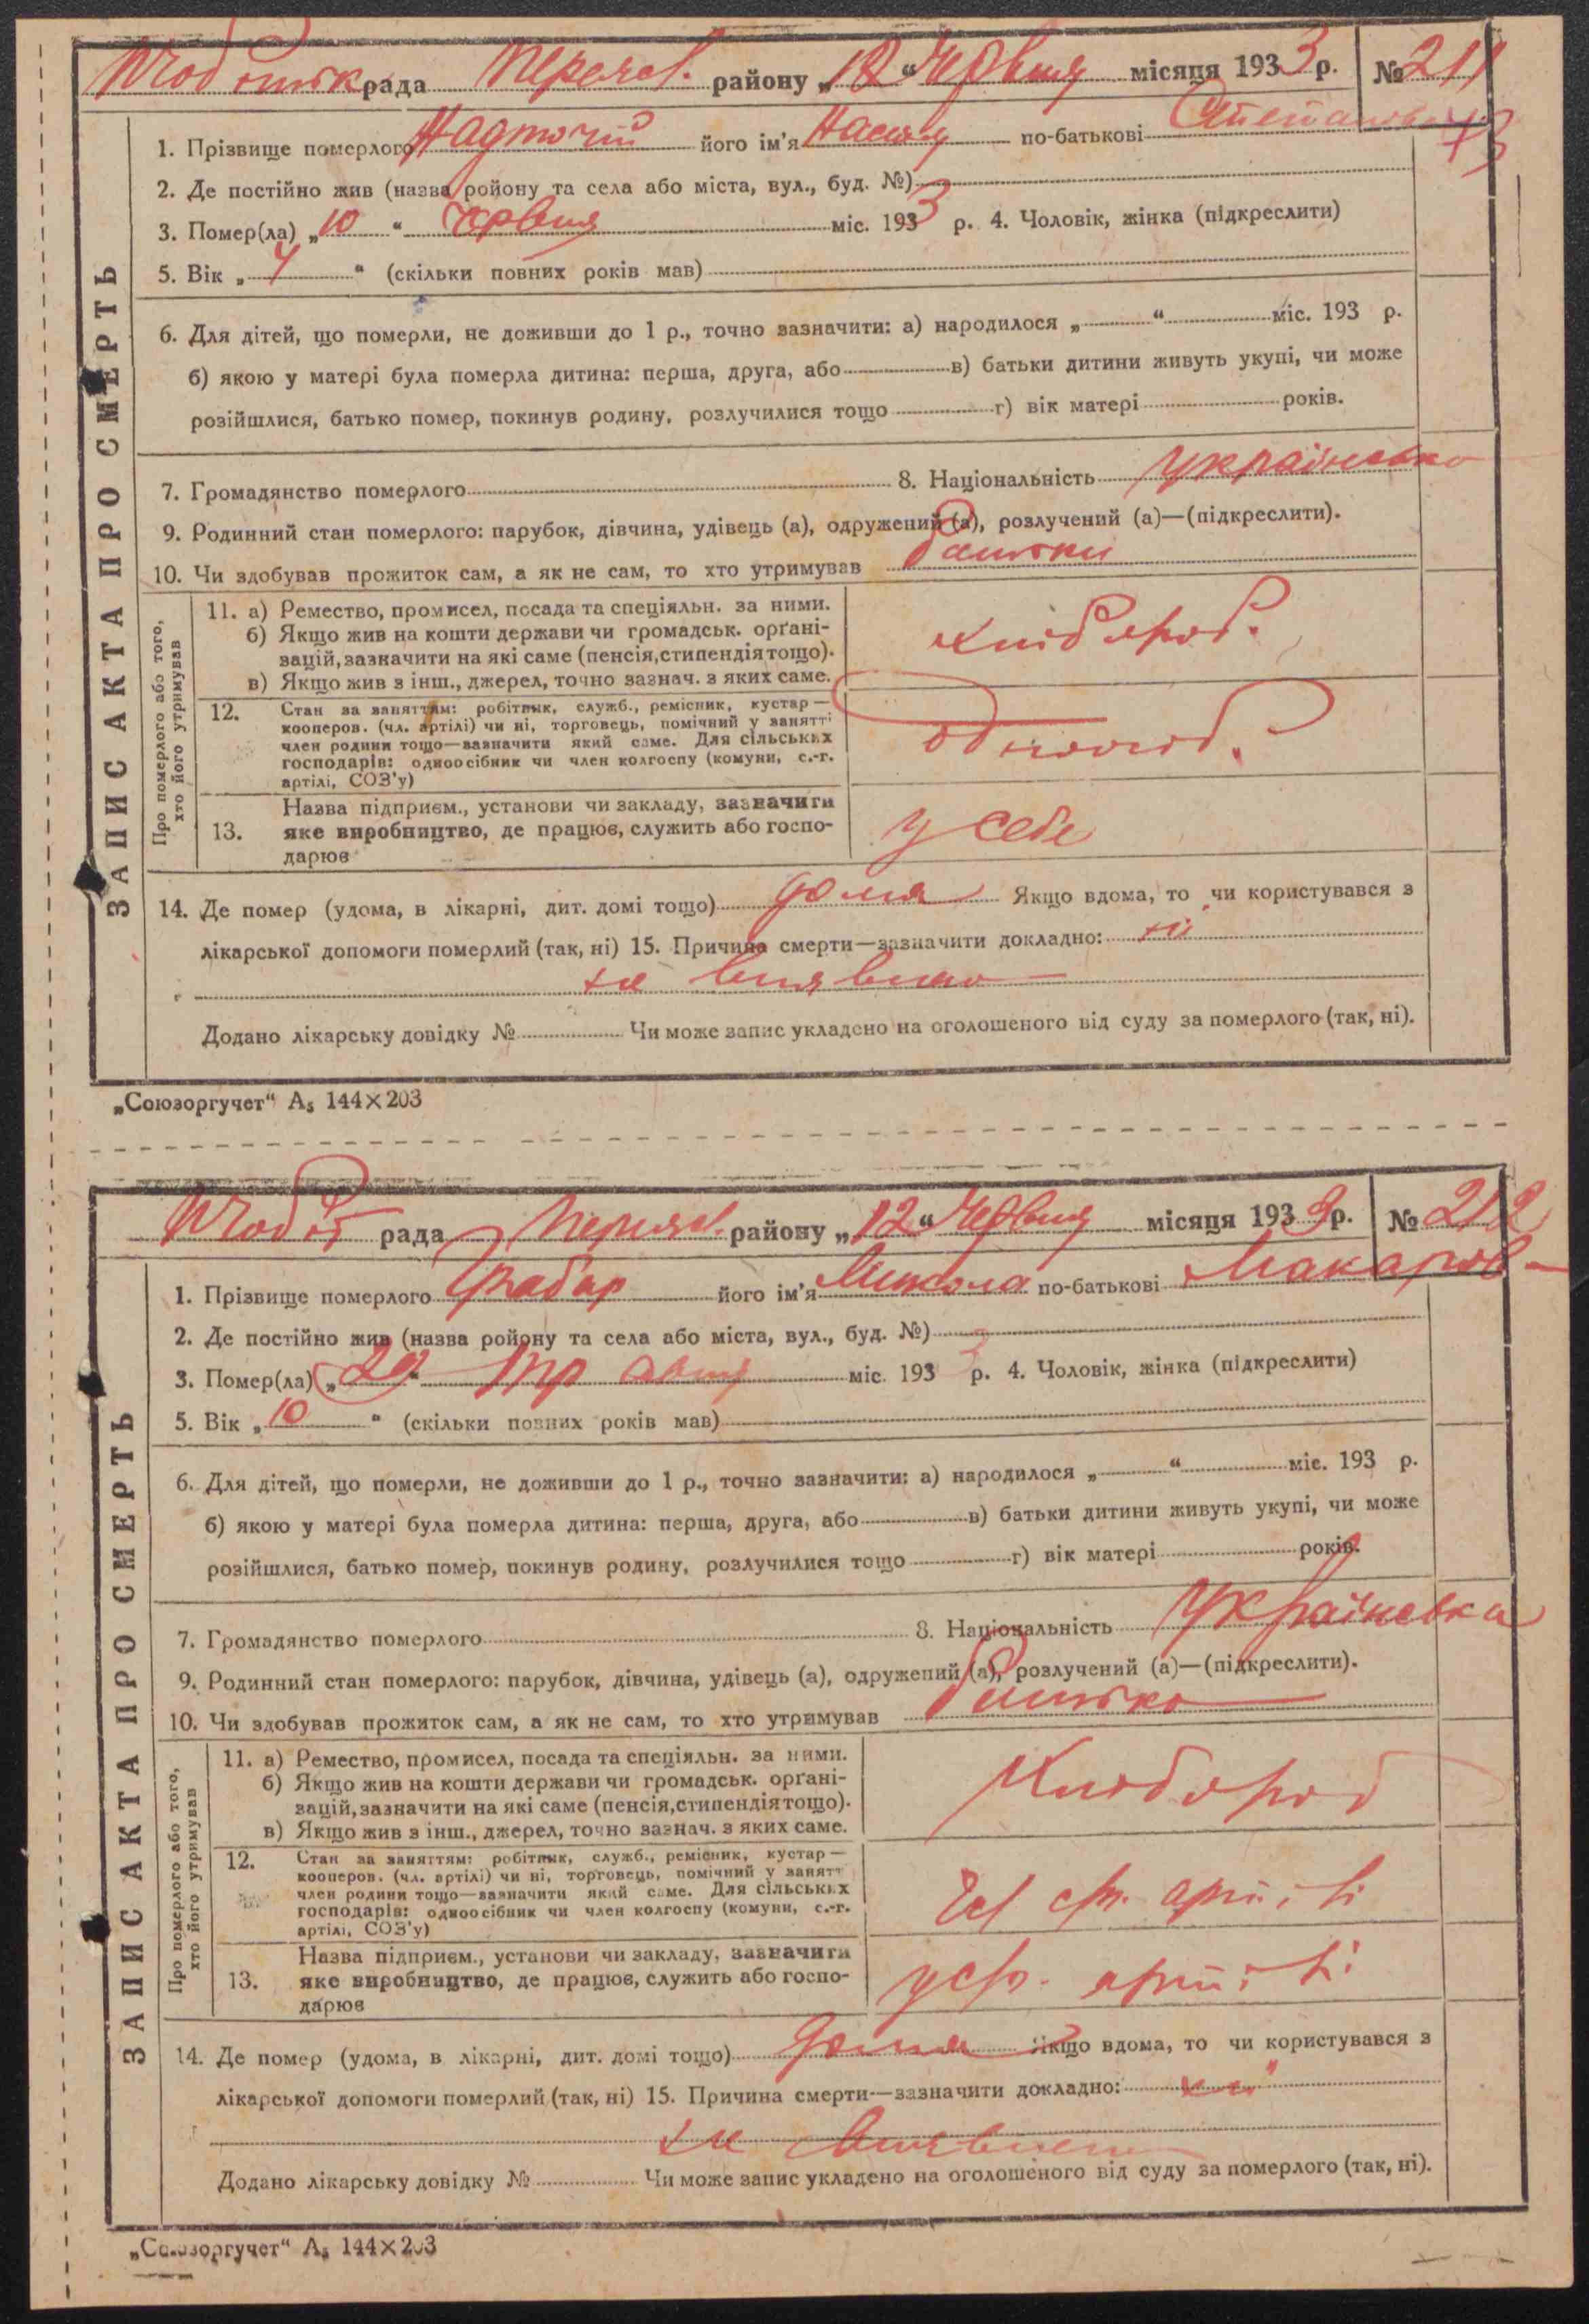 рада Переясл. району „12“ Червня місяця 1933 р. № 211
1. Прізвище померлого Надточій його ім'я по-батькові Степанов
2. Де постійно жив (назва ройону та села або міста, вул., буд. №)
3. Помер(ла) „10“ Червня міс. 1933 р. 4. Чоловік, жінка (підкреслити)
5. Вік „4“ (скільки повних років мав)
6. Для дітей, що померли, не доживши до 1 р., точно зазначити: а) народилося „ “ міс. 193 р.
б) якою у матері була померла дитина: перша, друга, або в) батьки дитини живуть укупі, чи може
розійшлися, батько помер, покинув родину, розлучилися тощо г) вік матері років.
7. Громадянство померлого 8. Національність українська
9. Родинний стан померлого: парубок, дівчина, удівець (а), одружений (а), розлучений (а)—(підкреслити).
10. Чи здобував прожиток сам, а як не сам, то хто утримував батьки
ЗАПИС АКТА ПРО СМЕРТЬ
Про померлого або того, хто його утримував
11. а) Ремество, промисел, посада та спеціяльн. за ними.
б) Якщо жив на кошти держави чи громадськ. органі-
зацій, зазначити на які саме (пенсія, стипендія тощо).
в) Якщо жив з інш., джерел, точно зазнач. з яких саме.
хлібороб.
12. Стан за заняттям: робітник, служб., ремісник, кустар—
кооперов. (чл. артілі) чи ні, торговець, помічний у занятті
член родини тощо—зазначити який саме. Для сільських
господарів: одноосібник чи член колгоспу (комуни, с.-г.
артілі, СОЗ'у)
одноосіб.
Назва підприєм., установи чи закладу, зазначити
13. яке виробництво, де працює, служить або госпо-
дарює
у себе
14. Де помер (удома, в лікарні, дит. домі тощо) дома Якщо вдома, то чи користувався з
лікарської допомоги померлий (так, ні) 15. Причина смерти—зазначити докладно: ні
не виявлено
Додано лікарську довідку № Чи може запис укладено на оголошеного від суду за померлого (так, ні).
„Союзоргучет“ А₅ 144×203
рада Переясл. району „12“ Червня місяця 1933 р. № 212
1. Прізвище померлого Грабар його ім'я Микола по-батькові Макаров
2. Де постійно жив (назва ройону та села або міста, вул., буд. №)
3. Помер(ла) „ “ травня міс. 1933 р. 4. Чоловік, жінка (підкреслити)
5. Вік „10“ (скільки повних років мав)
6. Для дітей, що померли, не доживши до 1 р., точно зазначити: а) народилося „ “ міс. 193 р.
б) якою у матері була померла дитина: перша, друга, або в) батьки дитини живуть укупі, чи може
розійшлися, батько помер, покинув родину, розлучилися тощо г) вік матері років.
7. Громадянство померлого 8. Національність Українська
9. Родинний стан померлого: парубок, дівчина, удівець (а), одружений (а), розлучений (а)—(підкреслити).
10. Чи здобував прожиток сам, а як не сам, то хто утримував батько
ЗАПИС АКТА ПРО СМЕРТЬ
Про померлого або того, хто його утримував
11. а) Ремество, промисел, посада та спеціяльн. за ними.
б) Якщо жив на кошти держави чи громадськ. органі-
зацій, зазначити на які саме (пенсія, стипендія тощо).
в) Якщо жив з інш., джерел, точно зазнач. з яких саме.
Хлібороб
12. Стан за заняттям: робітник, служб., ремісник, кустар—
кооперов. (чл. артілі) чи ні, торговець, помічний у занятт
член родини тощо—зазначити який саме. Для сільських
господарів: одноосібник чи член колгоспу (комуни, с.-г.
артілі, СОЗ'у)
артілі
Назва підприєм., установи чи закладу, зазначити
13. яке виробництво, де працює, служить або госпо-
дарює
артілі
14. Де помер (удома, в лікарні, дит. домі тощо) дома Якщо вдома, то чи користувався з
лікарської допомоги померлий (так, ні) 15. Причина смерти—зазначити докладно: ні
не виявлено
Додано лікарську довідку № Чи може запис укладено на оголошеного від суду за померлого (так, ні).
„Союзоргучет“ А₅ 144×203